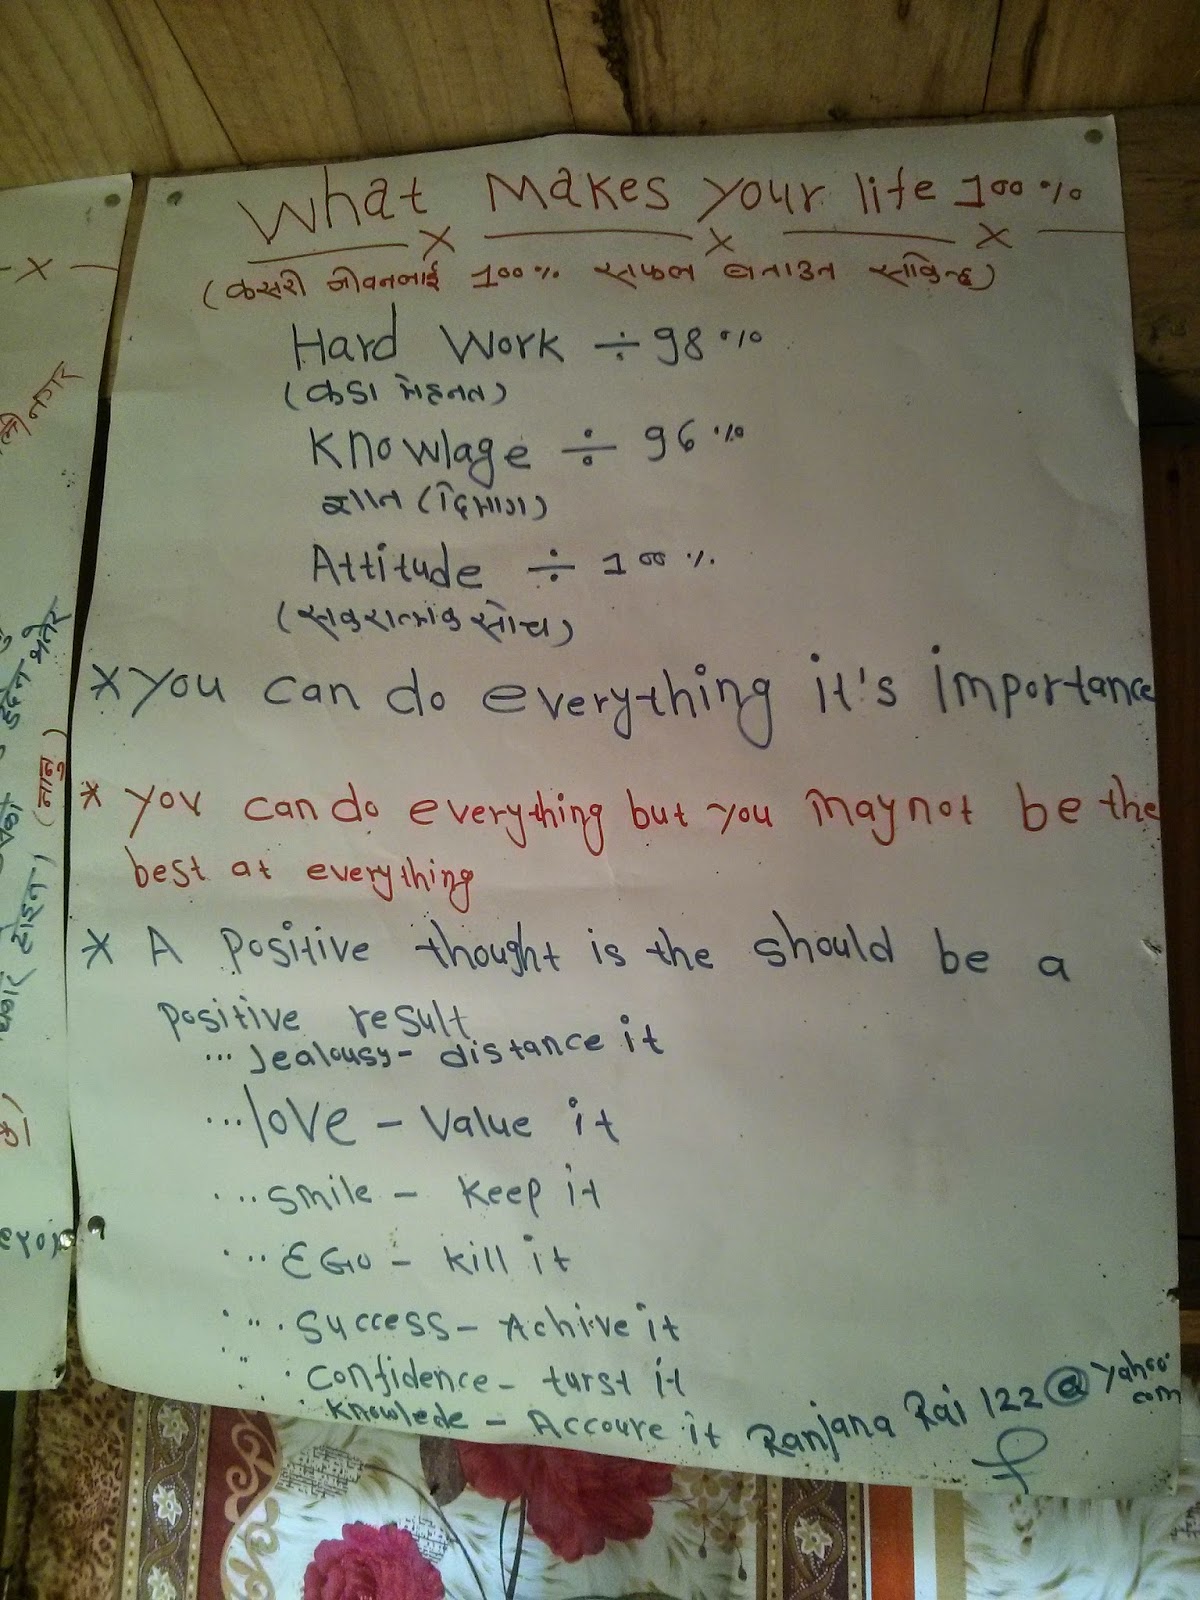 What Makes your life 100%
(कसरी जीवनलाई 100% सफल बनाउन सकिन्छ)
Hard Work ÷ 98%
(कडा मेहनत)
Knowlage ÷ 96%
ज्ञान (दिमाग)
Attitude ÷ 100%
(सकरात्मक सोच)
* you can do everything it's importance
* you can do everything but you may not be the
best at everything
* A positive thought is the should be a
positive result
... Jealousy - distance it
... love - Value it
... smile - keep it
... EGo - kill it
... success - Achive it
... confidence - turst it
... knowlede - Accoure it Ranjana Rai 122@yahoo.
com
नगर
(नानु)